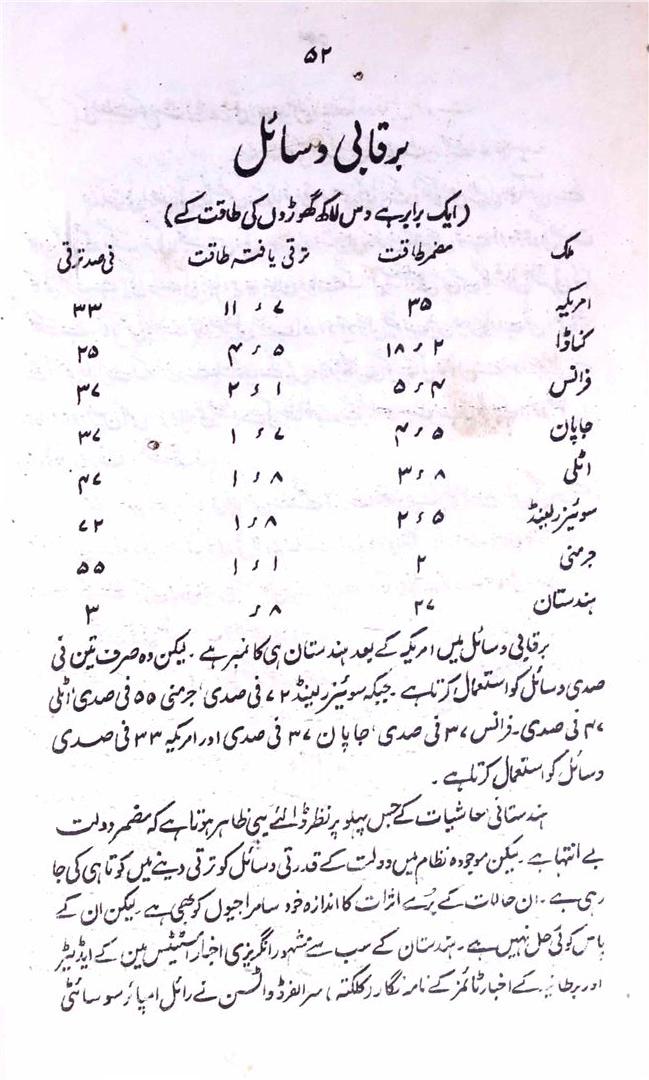 ۵۲
برقابی وسائل
(ایک برابر ہے دس لاکھ گھوڑوں کی طاقت کے)
ملک مضمر طاقت ترقی یافتہ طاقت فی صد ترقی
امریکہ ۳۵ ۷ء۱۱ ۳۳
کناڈا ۲ء۱۸ ۵ء۴ ۲۵
فرانس ۴ء۵ ۱ء۲ ۳۷
جاپان ۵ء۴ ۷ء۱ ۳۷
اٹلی ۸ء۳ ۸ء۱ ۴۷
سوئیزرلینڈ ۵ء۲ ۸ء۱ ۷۲
جرمنی ۲ ۱ء۱ ۵۵
ہندستان ۲۷ ۸ء ۳
برقابی وسائل میں امریکہ کے بعد ہندستان ہی کا نمبر ہے۔ لیکن وہ صرف تین فی
صدی وسائل کو استعمال کرتا ہے۔ جبکہ سوئیزرلینڈ ۷۲ فی صدی، جرمنی ۵۵ فی صدی، اٹلی
۴۷ فی صدی۔ فرانس ۳۷ فی صدی، جاپان ۳۷ فی صدی اور امریکہ ۳۳ فی صدی
وسائل کو استعمال کرتا ہے۔
ہندستانی معاشیات کے جس پہلو پر نظر ڈالئے یہی ظاہر ہوتا ہے کہ مضمر دولت
بے انتہا ہے۔ لیکن موجودہ نظام میں دولت کے قدرتی وسائل کو ترقی دینے میں کوتاہی کی جا
رہی ہے۔ ان حالات کے برُے اثرات کا اندازہ خود سامراجیوں کو بھی ہے۔ لیکن ان کے
پاس کوئی حل نہیں ہے۔ ہندستان کے سب سے مشہور انگریزی اخبار اسٹیٹس مین کے ایڈیٹر
اور برطانیہ کے اخبار ٹائمز کے نامہ نگار (کلکتہ) سر الفرڈ واٹسن نے رائل امپائر سوسائٹی